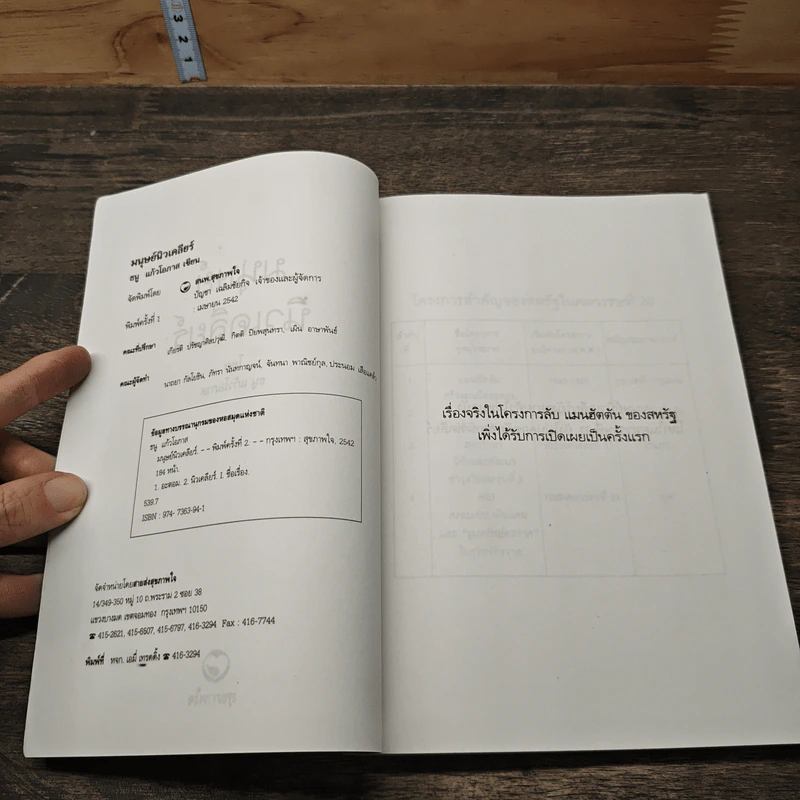 3
2
1
มนุษย์นิวเคลียร์
ธนู แก้วโอภาส เขียน
จัดพิมพ์โดย สนพ.สุขภาพใจ
บัญชา เฉลิมชัยกิจ เจ้าของและผู้จัดการ
พิมพ์ครั้งที่ 2 เมษายน 2542
คณะที่ปรึกษา เกียรติ ปรัชญาศิลปวุฒิ, กิตติ ปิยพสุนทรา, เผิน อาษาพันธ์
คณะผู้จัดทำ นาถยา กัลโยธิน, ภัทรา นันทกาญจน์, จันทนา พาณิชย์กุล, ประนอม
ข้อมูลทางบรรณานุกรมของหอสมุดแห่งชาติ
ธนู แก้วโอภาส
มนุษย์นิวเคลียร์. -- พิมพ์ครั้งที่ 2. -- กรุงเทพฯ : สุขภาพใจ, 2542
184 หน้า.
1. อะตอม. 2. นิวเคลียร์. I. ชื่อเรื่อง.
539.7
ISBN : 974-7363-94-1
จัดจำหน่ายโดยสายส่งสุขภาพใจ
14/349-350 หมู่ 10 ถ.พระราม 2 ซอย 38
แขวงบางมด เขตจอมทอง กรุงเทพฯ 10150
☎ 415-2621, 415-6507, 415-6797, 416-3294 Fax : 416-7744
พิมพ์ที่ หจก. เอมี่ เทรดดิ้ง ☎ 416-3294
เรื่องจริงในโครงการลับ แมนฮัตตัน ของสหรัฐ
เพิ่งได้รับการเปิดเผยเป็นครั้งแรก